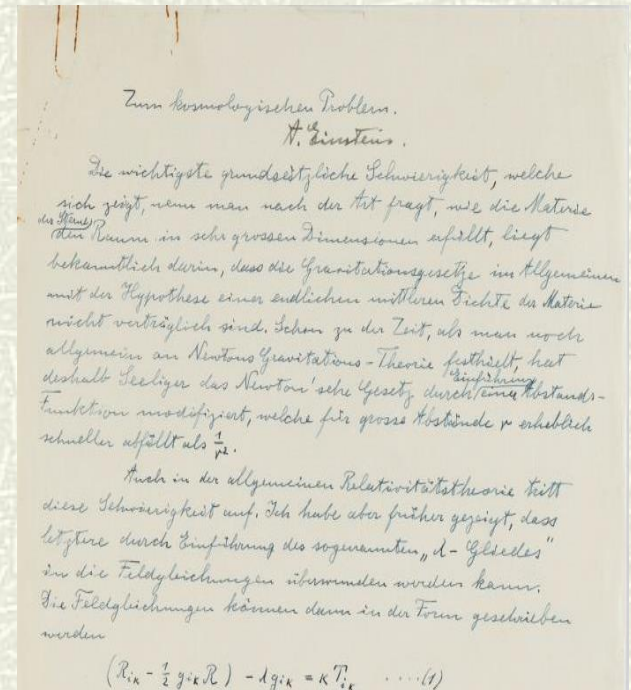 Zum kosmologischen Problem.
A. Einstein.
Die wichtigste grundsätzliche Schwierigkeit, welche
sich zeigt, wenn man nach der Art fragt, wie die Materie
den Raum in sehr grossen Dimensionen erfüllt, liegt
bekanntlich darin, dass die Gravitationsgesetze im Allgemeinen
mit der Hypothese einer endlichen mittleren Dichte der Materie
nicht verträglich sind. Schon zu der Zeit, als man noch
allgemein an Newtons Gravitations-Theorie festhielt, hat
deshalb Seeliger das Newton'sche Gesetz durch Einführung einer Abstands-
Funktion modifiziert, welche für grosse Abstände r erheblich
schneller abfällt als 1/r².
Auch in der allgemeinen Relativitätstheorie tritt
diese Schwierigkeit auf. Ich habe aber früher gezeigt, dass
letztere durch Einführung des sogenannten „λ-Gliedes"
in die Feldgleichungen überwunden werden kann.
Die Feldgleichungen können dann in der Form geschrieben
werden
(Rik - 1/2 gik R) - λgik = κ Tik .....(1)